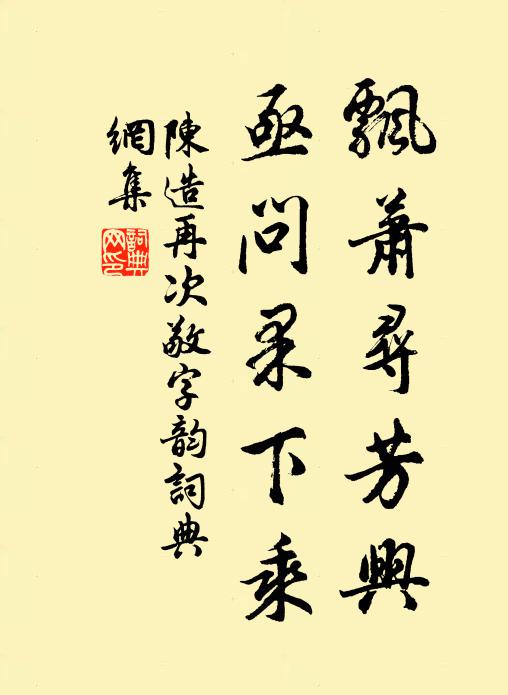 飄蕭尋芳興
亟問果下乘
陳造再次敬字韵詞典
網集
詞典网印